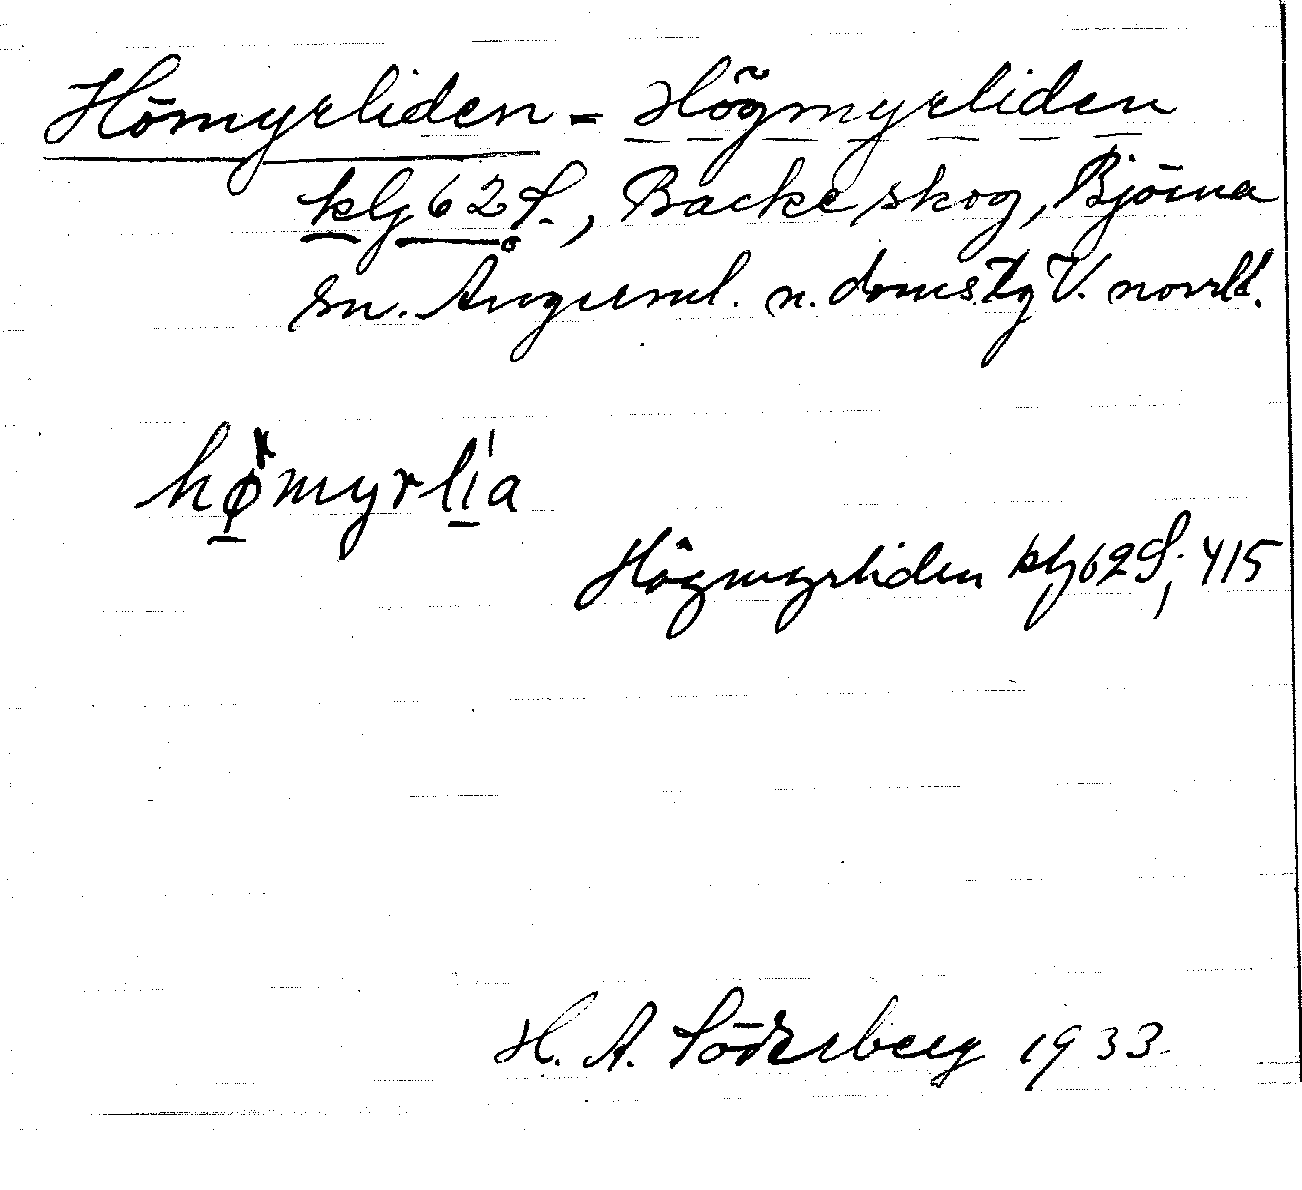 Hömyrliden - Högmyrliden
klg 62 S., Backe skog, Björna
sn. Ångerml. n. doms.tg V. norrld.
hø̱myrli̱a
Högmyrliden klg 62 S; 415
H. A. Söderberg 1933